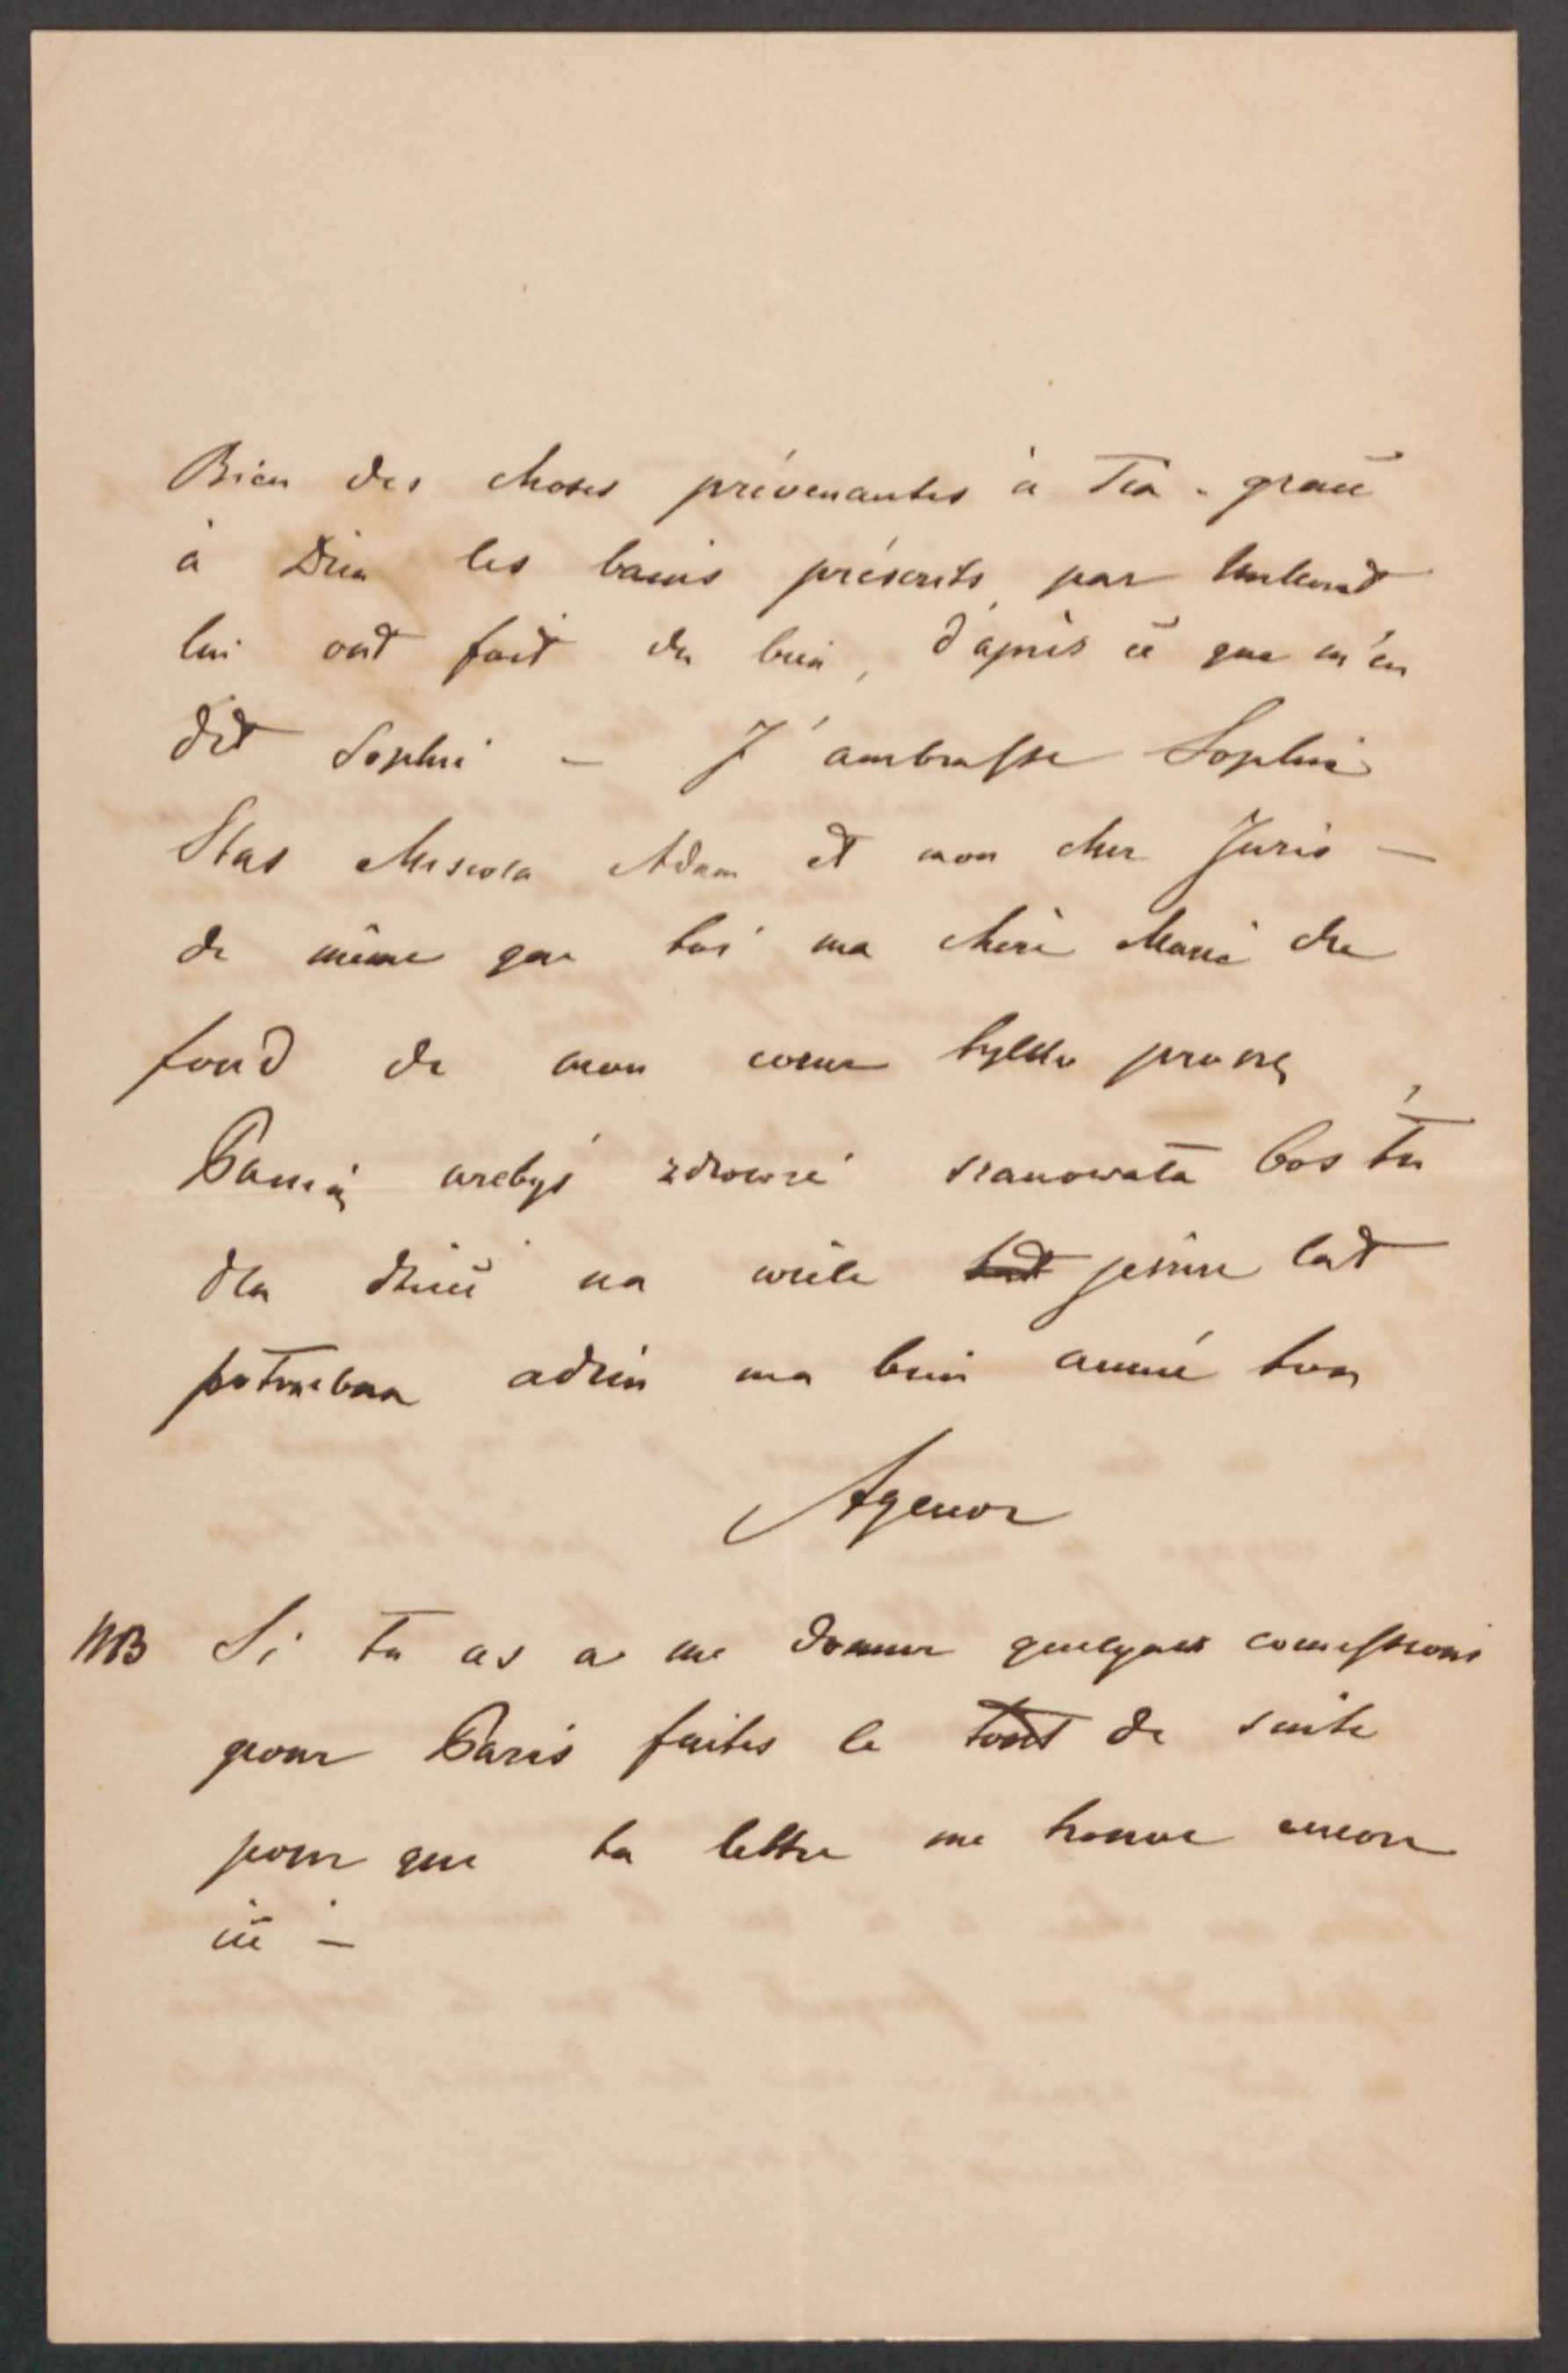 Bien des choses prévenantes à Téa - grace
à Dieu les bains préscrits par
lui ont fait du bien, d'après ce que m'en
dit Sophie – J'ambrasse Sophie
Stas Adam et mon cher Juris –
de même que toi ma chère Marie du
fond de mon coeur tylko proszę
Panią żebyś zdrowie szanowała boś tu
dla dzieci na wiele jeszcze lat
potrzebna adieu ma bien aimée ton
Agenor
NB Si tu as a me donner quelques comissions
pour Paris faites le tout de suite
pour que ta lettre me trouve encore
ici –